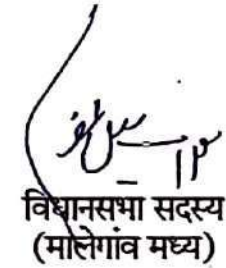 विधानसभा सदस्य
(मालेगांव मध्य)